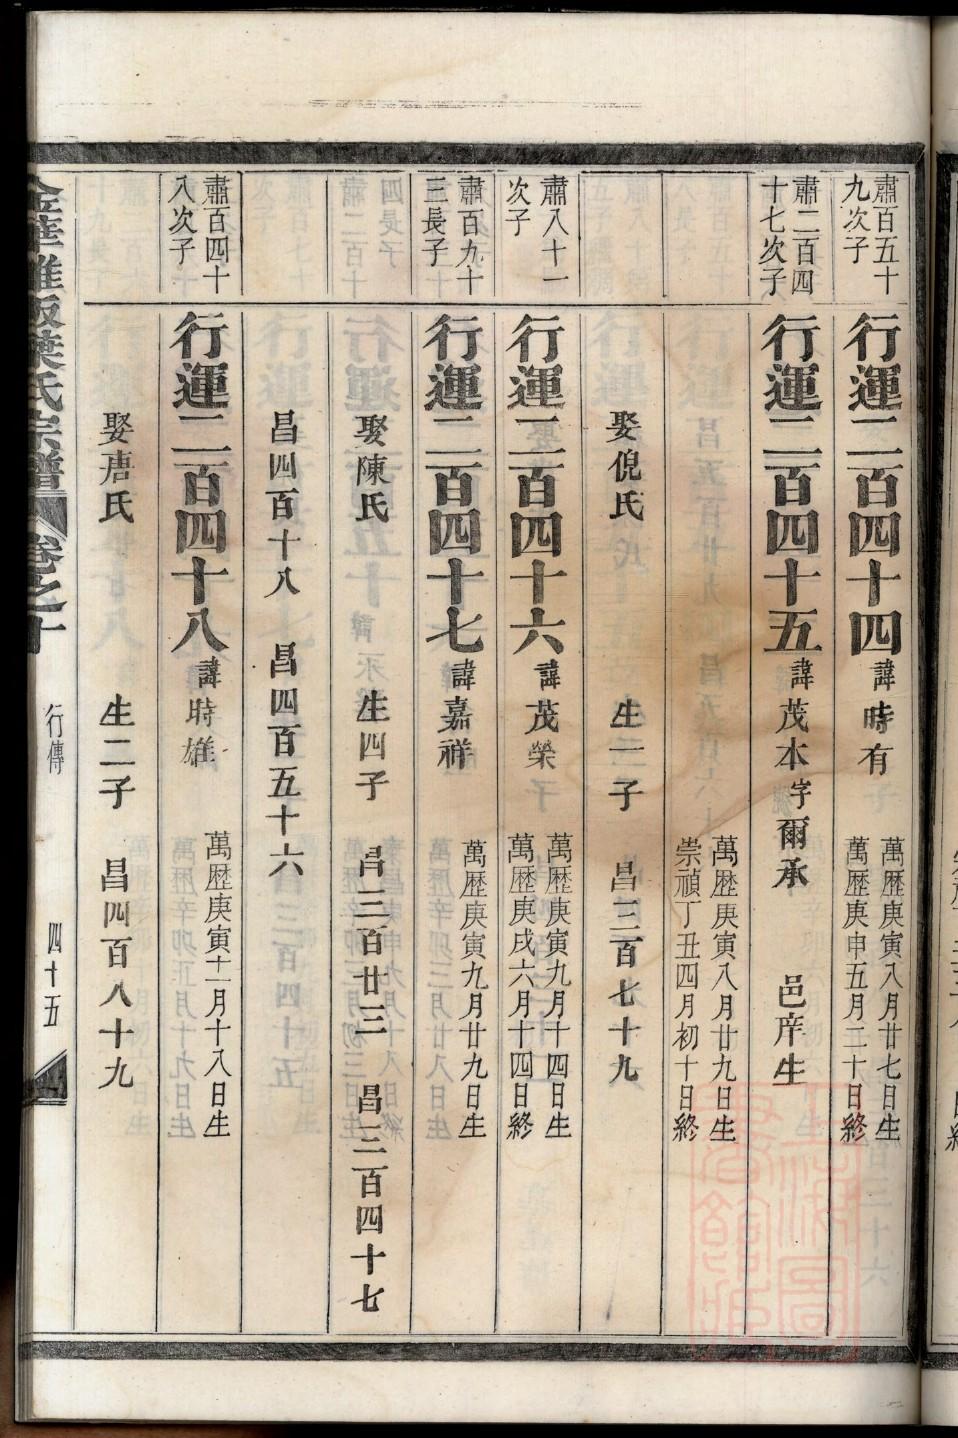 肅百五十
九次子
行運二百四十四諱時有
萬歷庚寅八月廿七日生
萬歷庚申五月二十日終
肅二百四
十七次子
行運二百四十五諱茂本字爾承 邑庠生
萬歷庚寅八月廿九日生
崇禎丁丑四月初十日終
娶倪氏 生一子 昌三百七十九
肅八十一
次子
行運二百四十六諱茂榮
萬歷庚寅九月十四日生
萬歷庚戌六月十四日終
肅百九十
三長子
行運二百四十七諱嘉祥
萬歷庚寅九月廿九日生
娶陳氏 生四子 昌三百廿三 昌三百四十七
昌四百十八 昌四百五十六
肅百四十
八次子
行運二百四十八諱時雄
萬歷庚寅十一月十八日生
娶唐氏 生二子 昌四百八十九
葉氏宗譜 卷之十 行傳 四十五